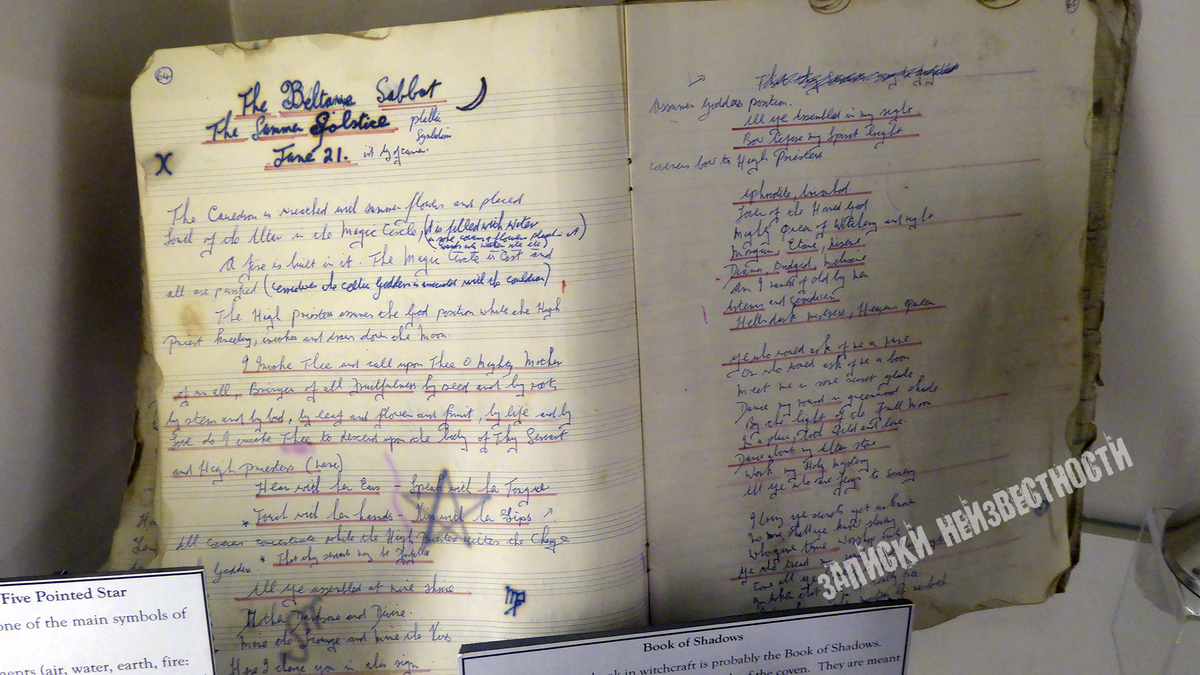 64
The Beltane Sabbat
The Summer Solstice
June 21.
X
The Cauldron is wreathed with summer flowers and placed
South of the Altar in the Magic Circle, (it is filled with water
A fire is built in it. The Magic Circle is Cast and
all are purified (Cerridwen the celtic Goddess is associated with the cauldron)
The High priestess assumes the God position while the High
Priest kneeling, invokes and draws down the Moon.
I Invoke Thee and call upon Thee O Mighty Mother
of us all, Bringer of all Fruitfulness by seed and by root,
by stem and by bud, by leaf and flower and fruit, by life and by
Love do I invoke Thee to descend upon the body of Thy Servant
and High priestess (name)
Hear with her Ears - Speak with her Tongue
Touch with her hands - Kiss with her Lips
All covens concentrate while the High Priestess recites the Charge
Goddess * That thy servants may be fulfilled
All ye assembled at mine shrine
Mother Darksome and Divine.
Mine the Scourge and mine the Kiss
Here I charge you in this sign
65
Assumes Goddess position.
All ye Assembled in my sight
Bow before my Spirit bright
coveners bow to High Priestess
Aphrodite, Arianrhod
Lover of the Horned God
Mighty Queen of Witchery and night
Morgan, Etoine, Nisene
Diana, Bridgid, Melusine
Am I named of old by men
Artemis and Cerridwen
Hell's dark mistress, Heaven's Queen
Ye who would ask of me a rune
Or who would ask of me a boon
Meet me in some secret glade
Dance my round in greenwood shade
By the light of the Full Moon
In a place, wild and lone
Dance about my Altar stone
Work my Holy mystery
All ye who are feign to sorcery
I bring ye secrets yet unknown
No more shall ye know slavery
Who give true worship
Ye who tread my
Come all ye
ЗАПИСКИ НЕИЗВЕСТНОСТИ
Five Pointed Star
one of the main symbols of
ments (air, water, earth, fire:
Book of Shadows
book in witchcraft is probably the Book of Shadows.
of the coven. They are meant